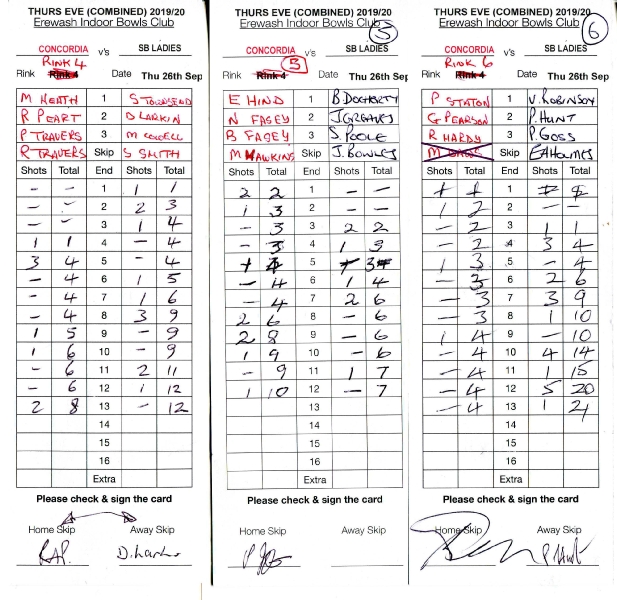 THURS EVE (COMBINED) 2019/20
Erewash Indoor Bowls Club
CONCORDIA v's SB LADIES
RINK 4
Rink Rink 4 Date Thu 26th Sep
M HEATH 1 S TOWNSEND
R PEART 2 D LARKIN
P TRAVERS 3
R TRAVERS Skip S SMITH
Shots Total End Shots Total
- - 1 1 1
- - 2 2 3
- - 3 1 4
1 1 4 - 4
3 4 5 - 4
- 4 6 1 5
- 4 7 1 6
- 4 8 3 9
1 5 9 - 9
1 6 10 - 9
- 6 11 2 11
- 6 12 1 12
2 8 13 - 12
14
15
16
Extra
Please check & sign the card
Home Skip Away Skip
D. Larkin
THURS EVE (COMBINED) 2019/20
Erewash Indoor Bowls Club
5
CONCORDIA v's SB LADIES
5
Rink Rink 4 Date Thu 26th Sep
E HIND 1 B DOCHERTY
N FAGEY 2 J GREAVES
B FAGEY 3 S. POOLE
M HAWKINS Skip J. BOWLES
Shots Total End Shots Total
2 2 1 - -
1 3 2 - -
- 3 3 2 2
- 3 4 1 3
5 3
- 4 6 1 4
- 4 7 2 6
2 6 8 - 6
2 8 9 - 6
1 9 10 - 6
- 9 11 1 7
1 10 12 - 7
13
14
15
16
Extra
Please check & sign the card
Home Skip Away Skip
THURS EVE (COMBINED) 2019/20
Erewash Indoor Bowls Club
6
CONCORDIA v's SB LADIES
RINK 6
Rink Rink 4 Date Thu 26th Sep
P STATON 1 V. ROBINSON
G PEARSON 2 P. HUNT
R HARDY 3 P. GOSS
M Skip EA HOLMES
Shots Total End Shots Total
1
1 2 2 - -
- 2 3 1 1
- 2 4 3 4
1 3 5 - 4
- 3 6 2 6
- 3 7 3 9
- 3 8 1 10
1 4 9 - 10
- 4 10 4 14
- 4 11 1 15
- 4 12 5 20
- 4 13 1 21
14
15
16
Extra
Please check & sign the card
Home Skip Away Skip
P Hunt